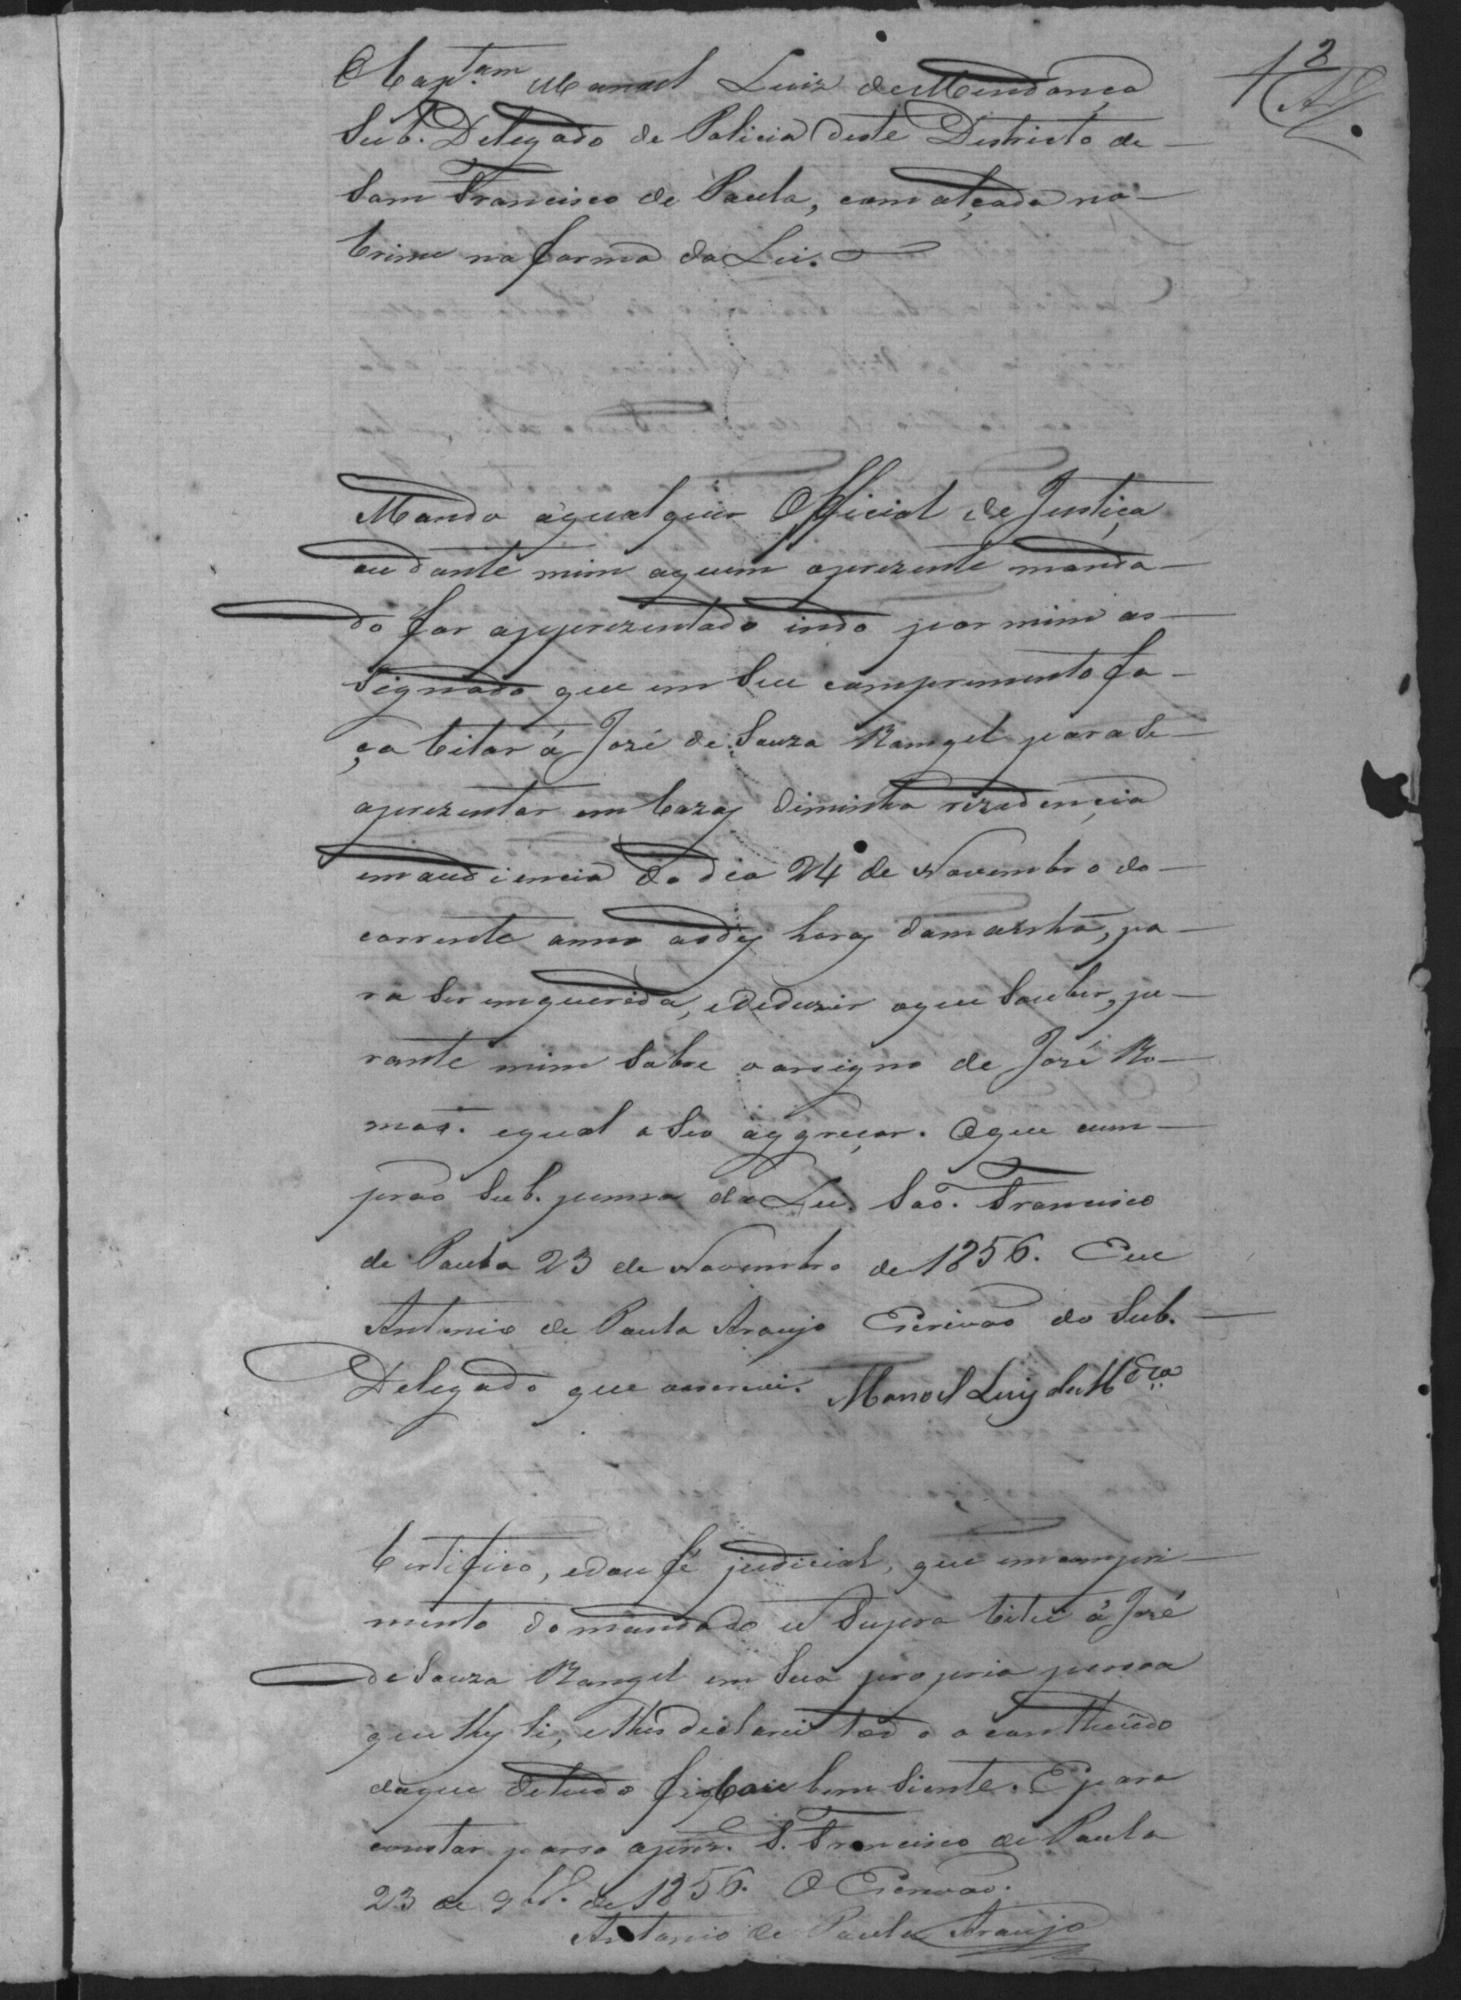 12
O Cap.tam Manoel Luiz de Mendonça
Sub. Delegado de Policia deste Districto de
Sam Francisco de Paula, com alçada no
Crime na forma da Lei.
Mando aqualquer Official de Justiça
ou dante mim aquem aprezente manda-
do for apprezentado indo por mim as-
signado que em seu comprimento fa-
ça Citar á José de Souza Rangel para se
aprezentar em Cazaz diminha rezidencia
em audiencia do dia 24 de Novembro do
corrente anno as dez horaz damanhã, pa-
ra ser enquerida, e deduzir oque souber, pe-
rante mim sobre o de José Ro-
mão. equal o seo aggreçor. Oque cum-
prão sub. penna da Lei. Sao. Francisco
de Paula 23 de Novembro de 1856. Eu
Antonio de Paula Araujo Escrivão do Sub.
Delegado que escrevi. Manoel Luiz de Mdca
Certifico, e dou fé judicial, que em compri-
mento do mandado supra Citei á José
de Souza Rangel em sua propria pessoa
que lhy li, e lhes declarei todo o contheudo
do que detudo ficou bem siente. E para
constar passo aprez. S. Francisco de Paula
23 de 9br.o de 1856. O Escrivão.
Antonio de Paula Araujo